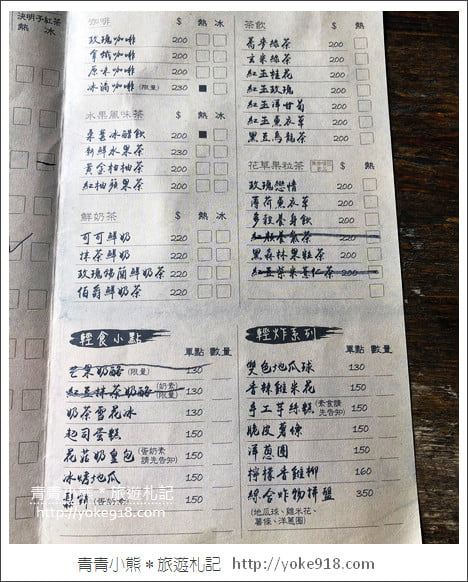 決明子紅茶
熱 冰
咖啡 $ 熱 冰
玫瑰咖啡 200
拿鐵咖啡 200
原味咖啡 200
冰滴咖啡 (限量) 230
水果風味茶 $ 熱 冰
桑葚冰醋飲 200
新鮮水果茶 230
黃金柚柚茶 200
紅柚蘋果茶 200
鮮奶茶 $ 熱 冰
可可鮮奶 220
抹茶鮮奶 220
玫瑰錫蘭鮮奶茶 220
伯爵鮮奶茶 220
茶飲 $ 熱
蕎麥綠茶 200
玄米綠茶 200
紅玉桂花 200
紅玉玫瑰 200
紅玉洋甘菊 200
紅玉薰衣草 200
黑豆烏龍茶 200
花草果粒茶 $ 熱
玫瑰戀情 200
薄荷薰衣草 200
多種養身飲 200
200
黑森林果粒茶 200
紅豆紫米薏仁茶 200
輕食小點
單點 數量
芒果奶酪 (限量) 130
紅豆抹茶奶酪 (奶素)(限量) 130
奶茶雪花冰 130
起司蛋糕 130
花菇奶皇包 (蛋奶素請先告知) 150
冰烤地瓜 150
鬆餅 (蛋奶素) 150
輕炸系列
單點 數量
雙色地瓜球 130
香辣雞米花 150
手工芋絲糕 (素食請先告知) 150
脆皮薯條 150
洋蔥圈 150
檸檬香雞柳 160
綜合炸物拼盤 350
(地瓜球、雞米花、
薯條、洋蔥圈)
青青小熊＊旅遊札記
http://yoke918.com/
青青小熊＊旅遊札記 http://yoke918.com/